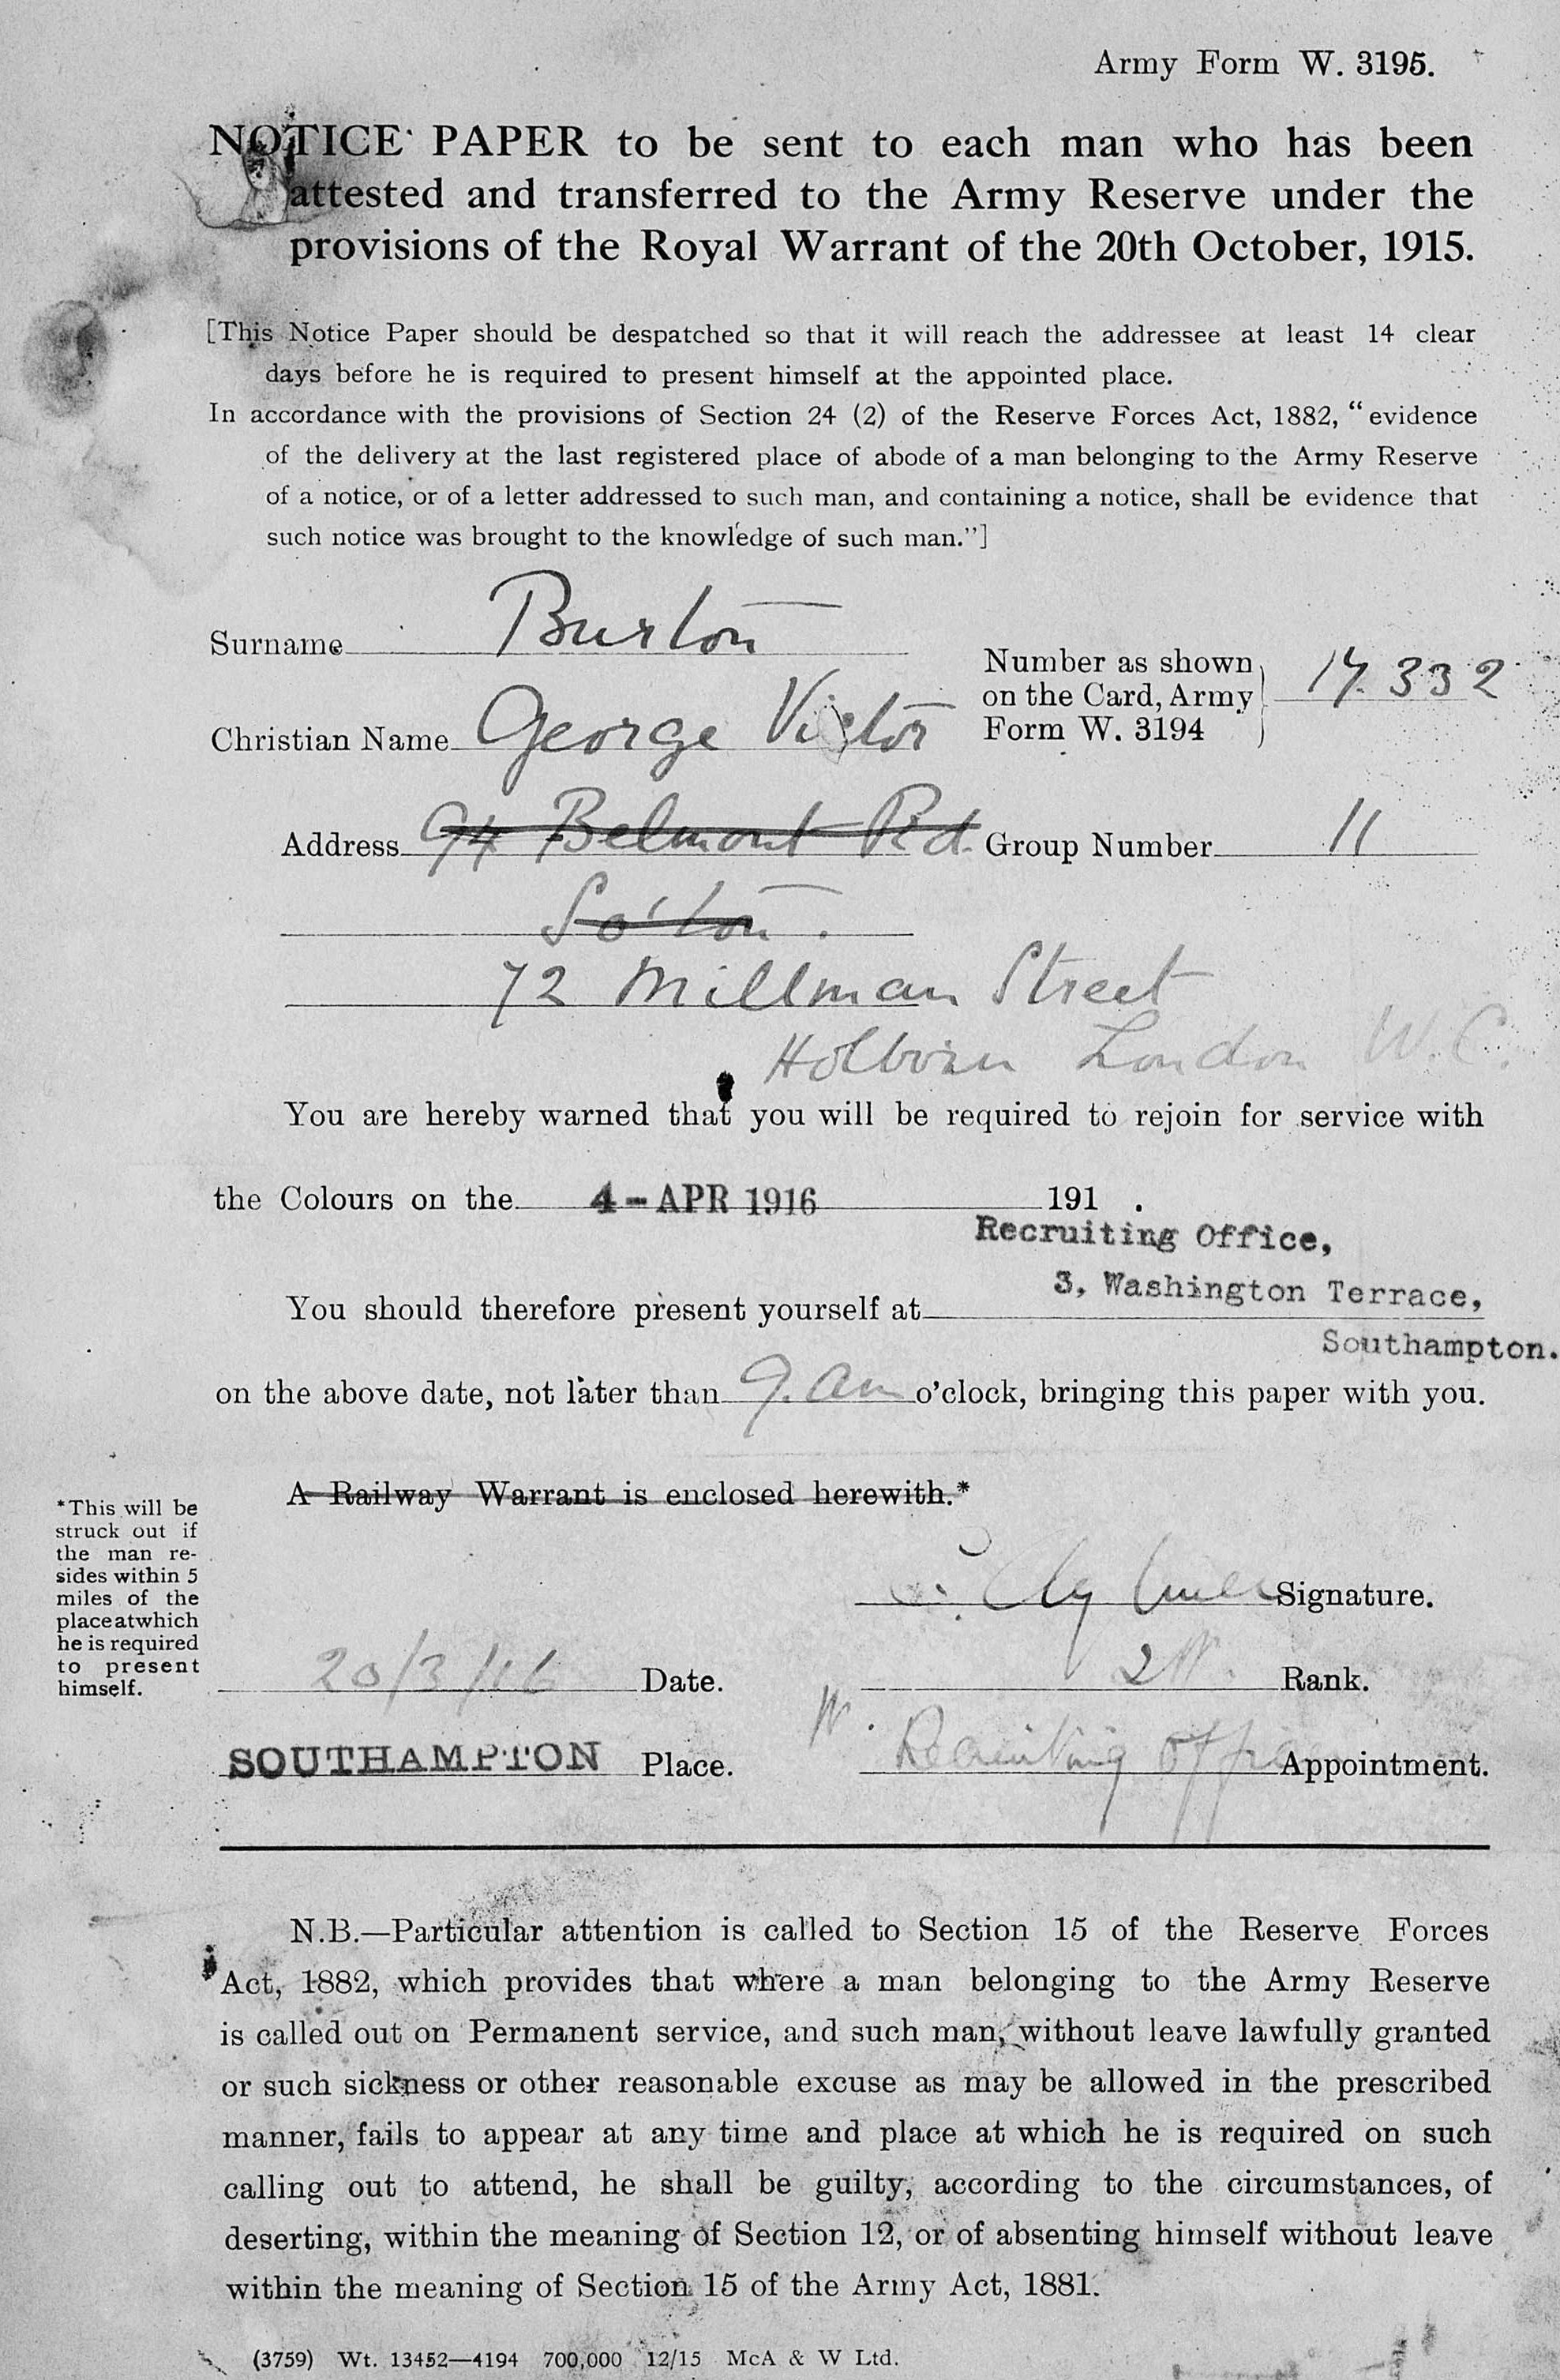 Army Form W. 3195.
NOTICE PAPER to be sent to each man who has been
attested and transferred to the Army Reserve under the
provisions of the Royal Warrant of the 20th October, 1915.
[This Notice Paper should be despatched so that it will reach the addressee at least 14 clear
days before he is required to present himself at the appointed place.
In accordance with the provisions of Section 24 (2) of the Reserve Forces Act, 1882, “evidence
of the delivery at the last registered place of abode of a man belonging to the Army Reserve
of a notice, or of a letter addressed to such man, and containing a notice, shall be evidence that
such notice was brought to the knowledge of such man.”]
Surname Burton
Number as shown
on the Card, Army
Form W. 3194
17.332
Christian Name George Victor
Address 94 Belmont Rd. Group Number 11
So'ton.
72 Millman Street
Holborn London W.C.
You are hereby warned that you will be required to rejoin for service with
the Colours on the 4 - APR 1916 191 .
Recruiting Office,
3, Washington Terrace,
You should therefore present yourself at
Southampton.
on the above date, not later than 9. am o'clock, bringing this paper with you.
A Railway Warrant is enclosed herewith.*
*This will be
struck out if
the man re-
sides within 5
miles of the
place at which
he is required
to present
himself.
Signature.
20/3/16 Date.
Rank.
SOUTHAMPTON Place.
Recruiting Officer Appointment.
N.B.—Particular attention is called to Section 15 of the Reserve Forces
Act, 1882, which provides that where a man belonging to the Army Reserve
is called out on Permanent service, and such man, without leave lawfully granted
or such sickness or other reasonable excuse as may be allowed in the prescribed
manner, fails to appear at any time and place at which he is required on such
calling out to attend, he shall be guilty, according to the circumstances, of
deserting, within the meaning of Section 12, or of absenting himself without leave
within the meaning of Section 15 of the Army Act, 1881.
(3759) Wt. 13452—4194 700,000 12/15 McA & W Ltd.